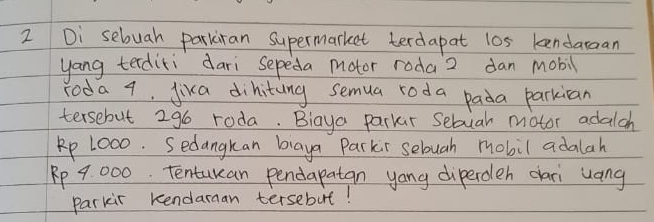 2 Di sebuah parkiran Supermarket terdapat 105 kendaraan
yang terdiri dari sepeda Motor roda 2 dan Mobil
roda 4. Jika dihitung semua roda pada parkiran
tersebut 296 roda. Biaya parkir Sebuah motor adalah
Rp 1.000. Sedangkan biaya Parkir sebuah mobil adalah
Rp 4.000. Tentukan pendapatan yang diperoleh dari uang
parkir kendaraan tersebut!